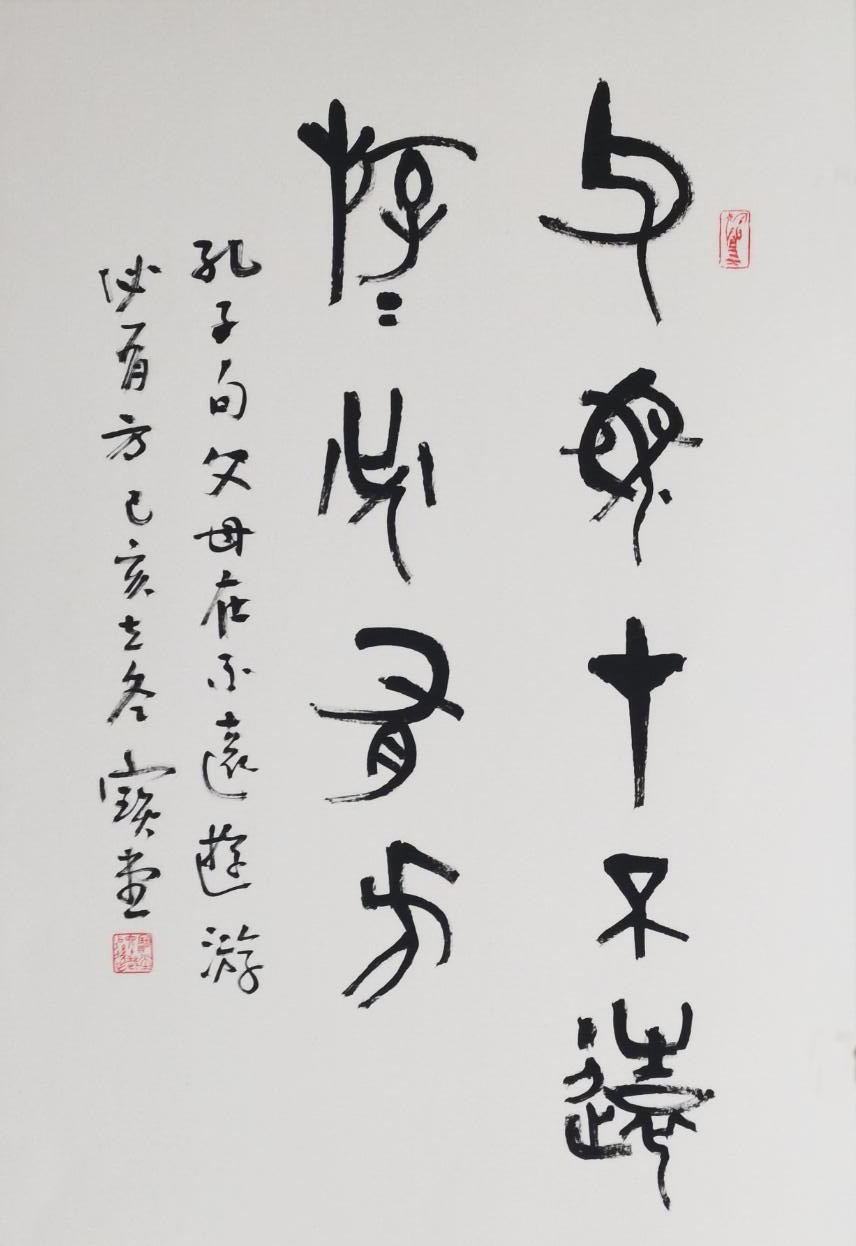 父母才不遠
斿=必有方
孔子句父母在不遠遊游
必有方己亥立冬寶堂